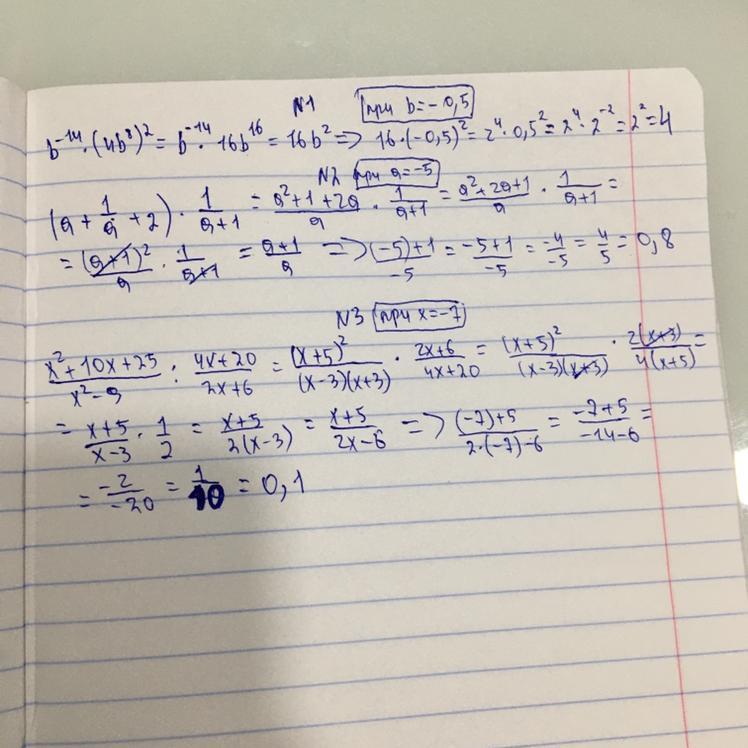 N1 при b=-0,5
b⁻¹⁴·(4b⁸)² = b⁻¹⁴·16b¹⁶ = 16b² => 16·(-0,5)² = 2⁴·0,5² = 2⁴·2⁻² = 2² = 4
N2 при a=-5
(a + 1/a + 2) · 1/(a+1) = (a²+1+2a)/a · 1/(a+1) = (a²+2a+1)/a · 1/(a+1) =
= (a+1)²/a · 1/(a+1) = (a+1)/a => ((-5)+1)/(-5) = (-5+1)/(-5) = (-4)/(-5) = 4/5 = 0,8
N3 при x=-7
(x²+10x+25)/(x²-9) : (4x+20)/(2x+6) = (x+5)²/((x-3)(x+3)) · (2x+6)/(4x+20) = (x+5)²/((x-3)(x+3)) · 2(x+3)/(4(x+5)) =
= (x+5)/(x-3) · 1/2 = (x+5)/(2(x-3)) = (x+5)/(2x-6) => ((-7)+5)/(2·(-7)-6) = (-7+5)/(-14-6) =
= (-2)/(-20) = 1/10 = 0,1